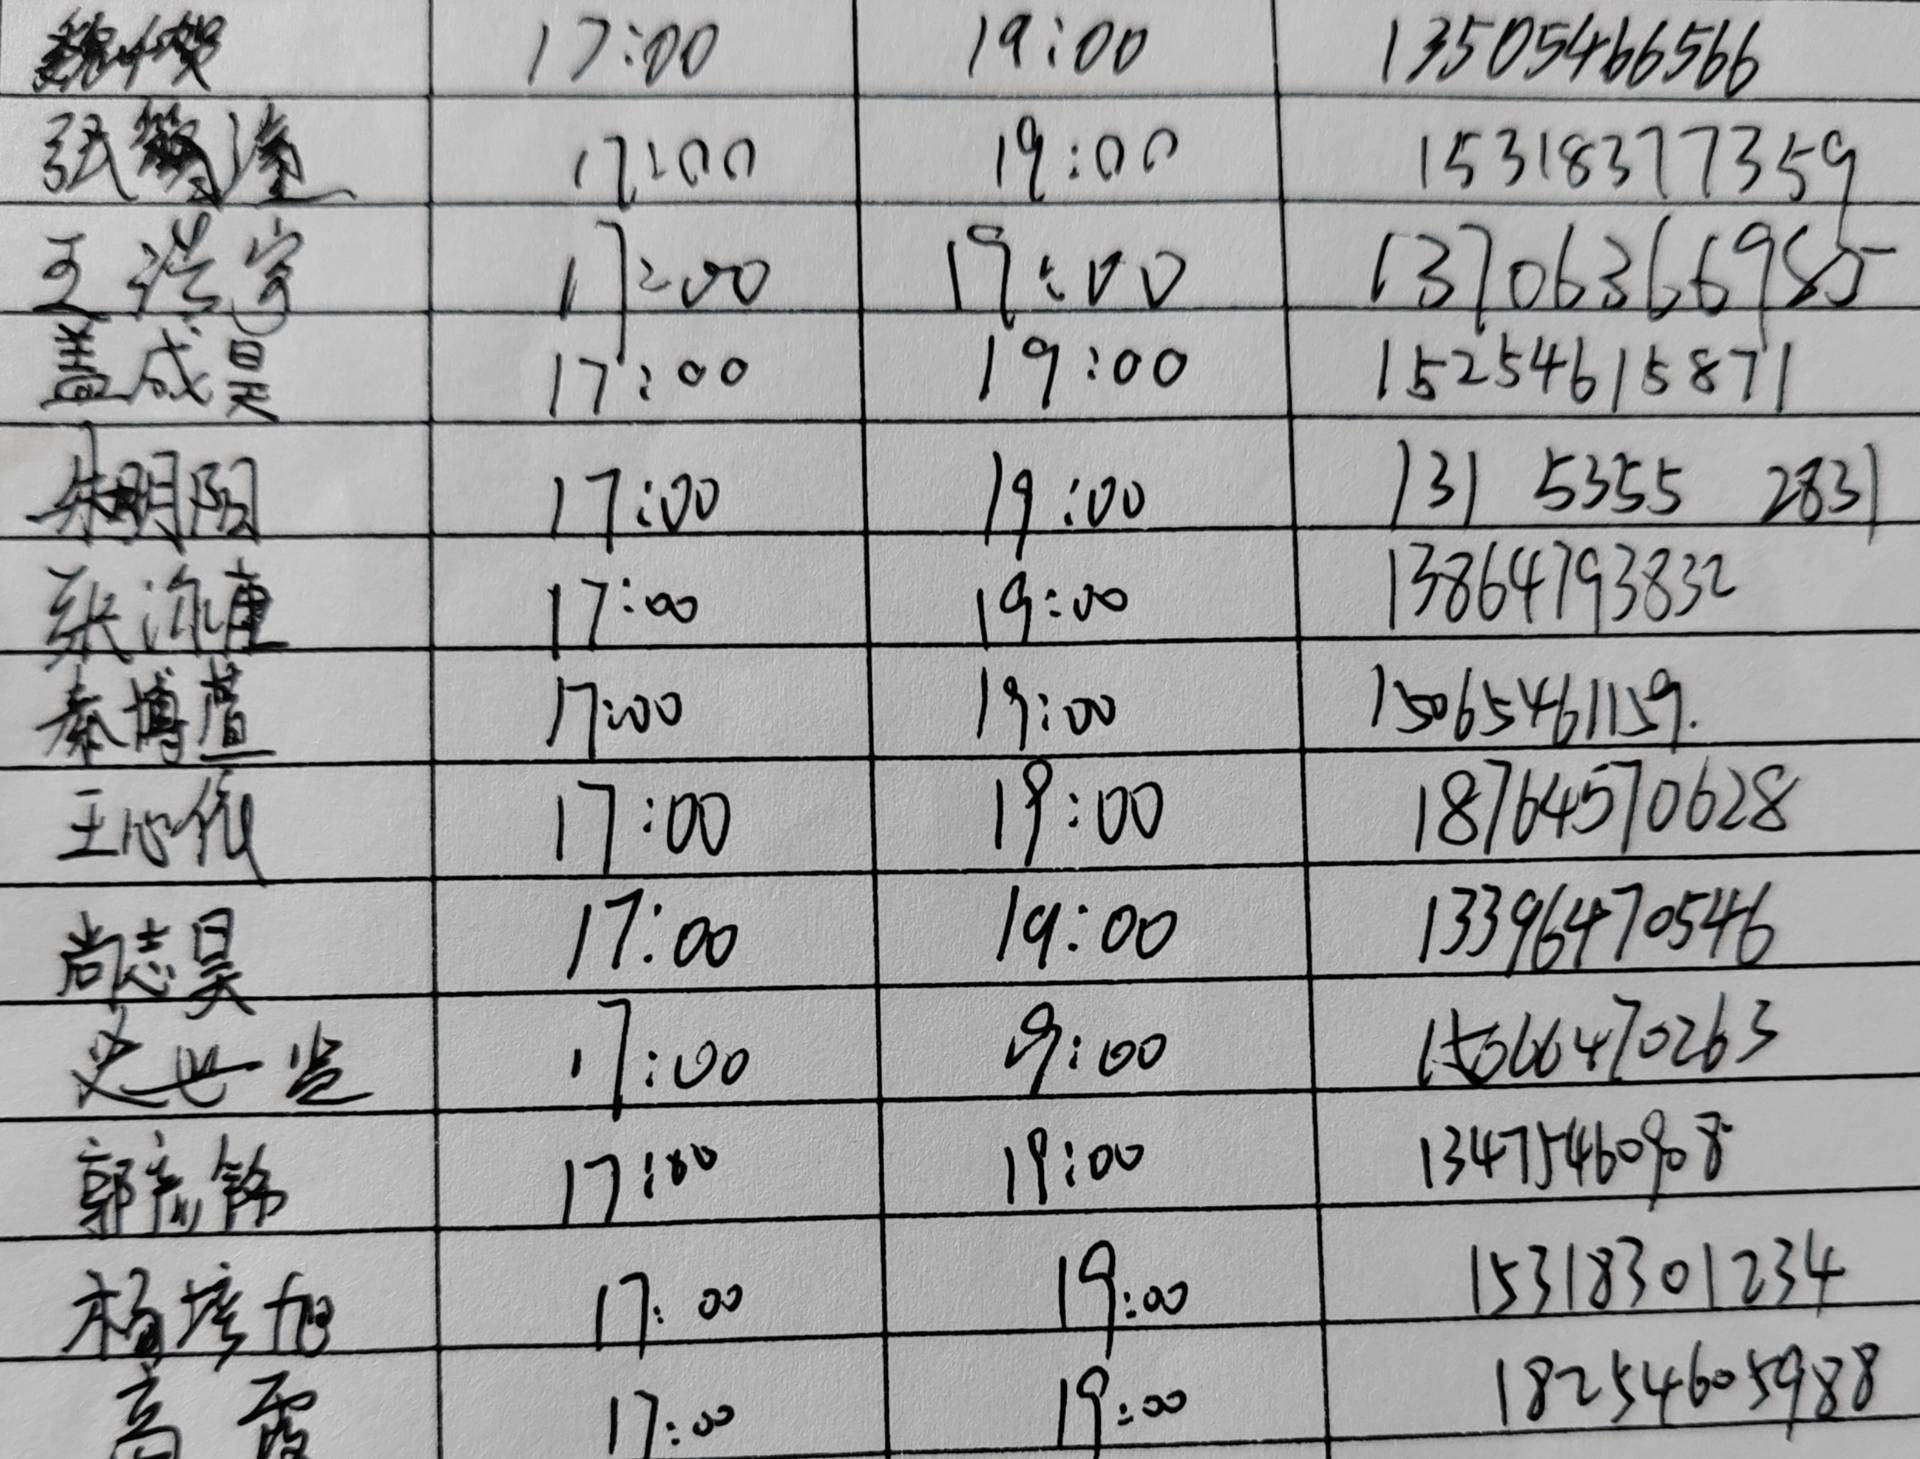 17:00 19:00 13505466566
张 17:00 19:00 15318377359
王浩宇 17:00 19:00 13706366985
盖成昊 17:00 19:00 15254615871
朱明阳 17:00 19:00 131 5355 2831
张 17:00 19:00 13864793832
秦博萱 17:00 19:00 15065461159.
王心依 17:00 19:00 18764570628
尚志昊 17:00 19:00 13396470546
史世 17:00 19:00 15066470263
郭锦 17:00 19:00 13475460908
杨培旭 17:00 19:00 15318301234
高霞 17:00 19:00 18254605988